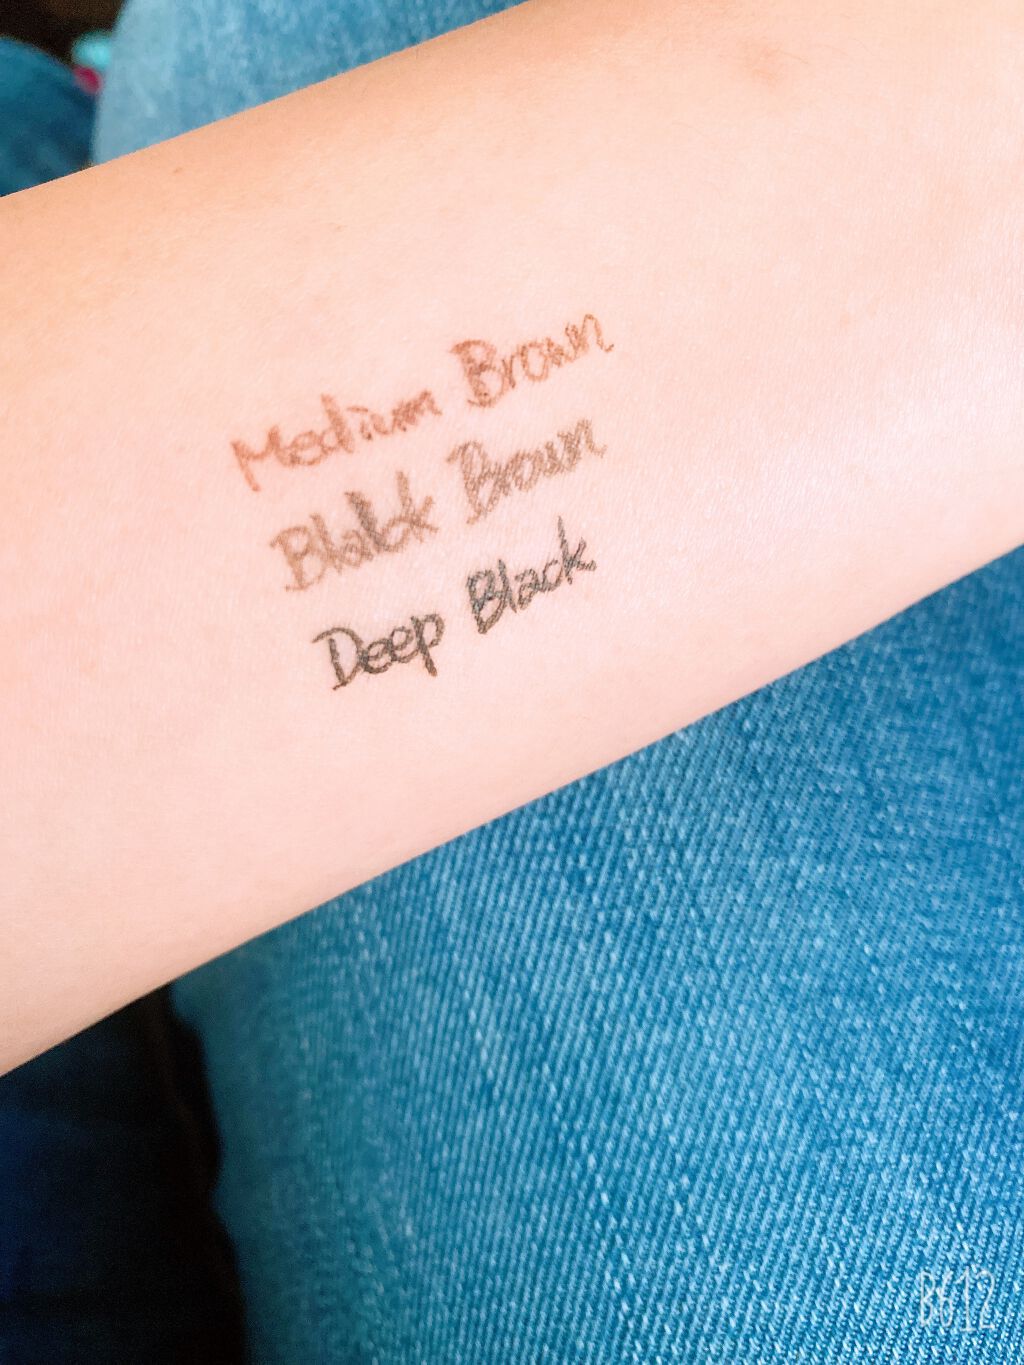 Medium Brown
Black Brown
Deep Black
B612